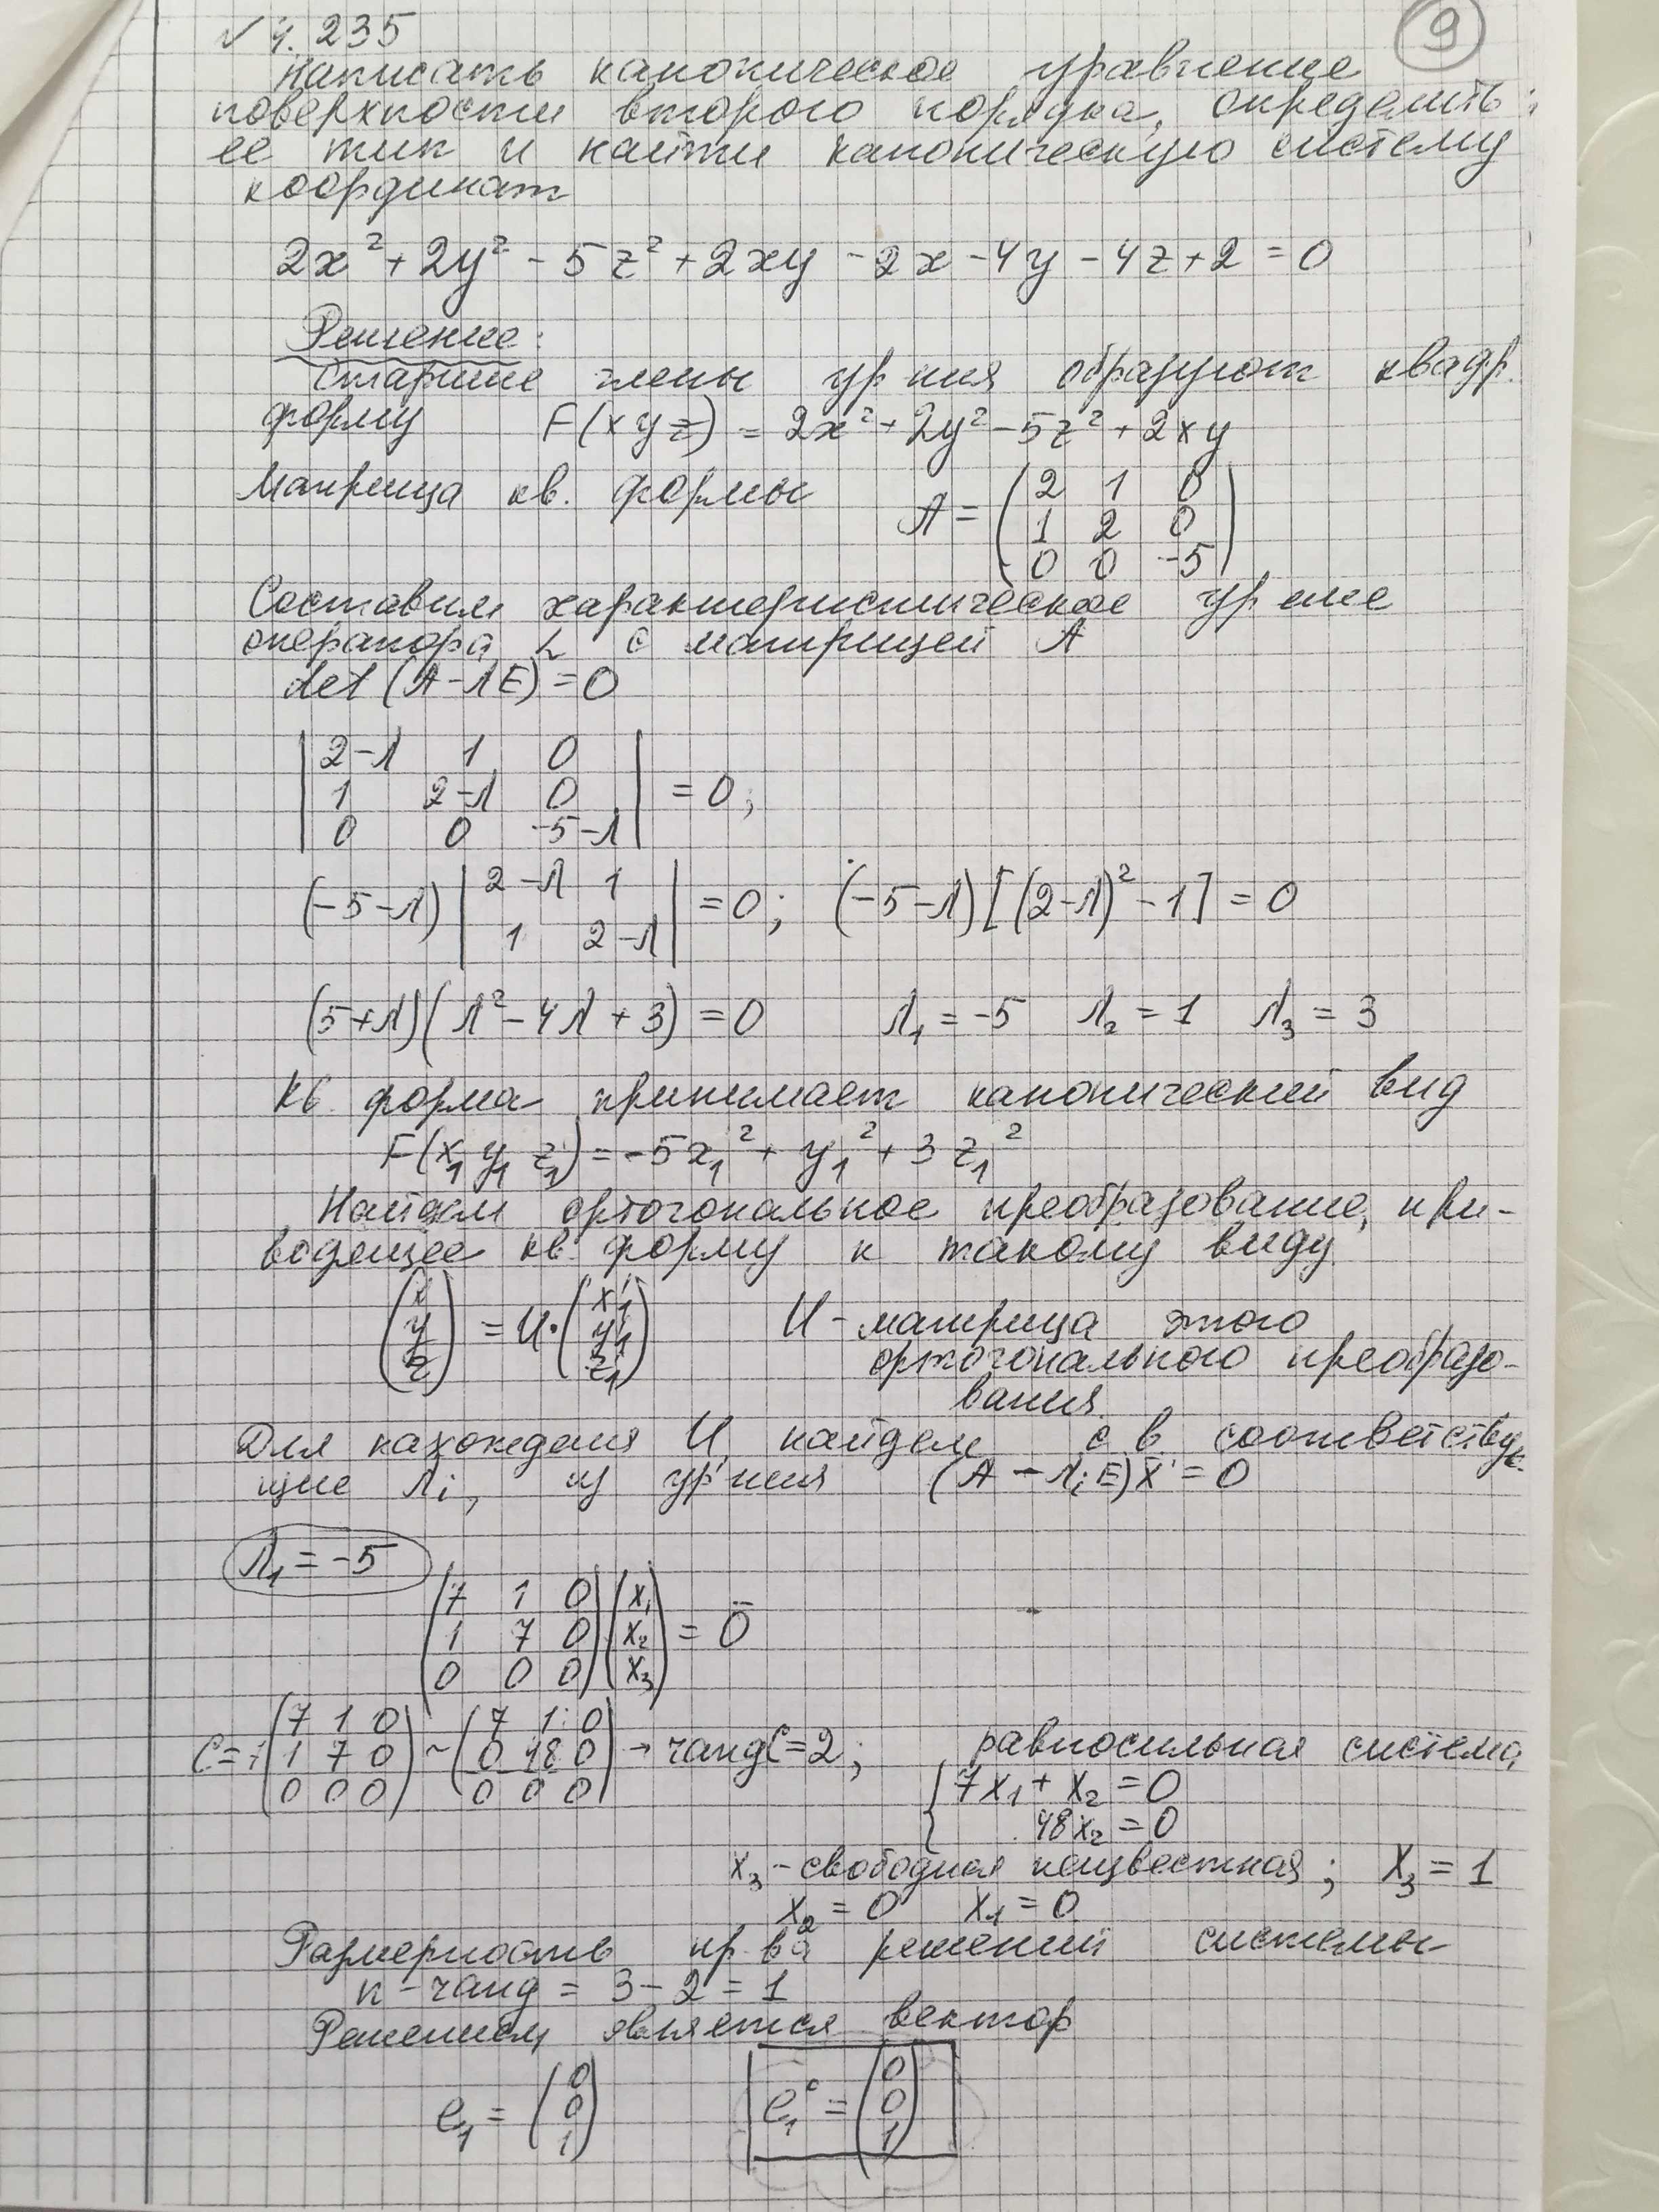 9
√ 4.235
Написать каноническое уравнение
поверхности второго порядка, определить
ее тип и найти каноническую систему
координат
2x² + 2y² - 5z² + 2xy - 2x - 4y - 4z + 2 = 0
Решение:
Старшие члены ур-ния образуют квадр.
форму F(xyz) = 2x² + 2y² - 5z² + 2xy
Матрица кв. формы A = (2 1 0
1 2 0
0 0 -5)
Составим характеристическое ур-ние
оператора L с матрицей A
det (A - λE) = 0
|2-λ 1 0|
|1 2-λ 0| = 0;
|0 0 -5-λ|
(-5-λ) |2-λ 1
1 2-λ| = 0; (-5-λ)[(2-λ)² - 1] = 0
(5+λ)(λ² - 4λ + 3) = 0 λ₁ = -5 λ₂ = 1 λ₃ = 3
Кв. форма принимает канонический вид
F(x₁ y₁ z₁) = -5x₁² + y₁² + 3z₁²
Найдем ортогональное преобразование, при-
водящее кв. форму к такому виду
(x
y
z) = U·(x₁
y₁
z₁) U - матрица этого
ортогонального преобразо-
вания.
Для нахождения U, найдем с.в. соответству-
щие λᵢ, из ур-ния (A - λᵢE)X̄ = 0
λ₁ = -5
(7 1 0) (x₁)
(1 7 0) (x₂) = 0̄
(0 0 0) (x₃)
C = (7 1 0
1 7 0
0 0 0) ~ (7 1 0
0 48 0
0 0 0) → rang C = 2; равносильная система
{7x₁ + x₂ = 0
48x₂ = 0
x₃ - свободная неизвестная; X₃ = 1
x₂ = 0 x₁ = 0
Размерность пр-ва решений системы
n - rang = 3 - 2 = 1
Решением является вектор
e₁ = (0
0
1) e₁° = (0
0
1)